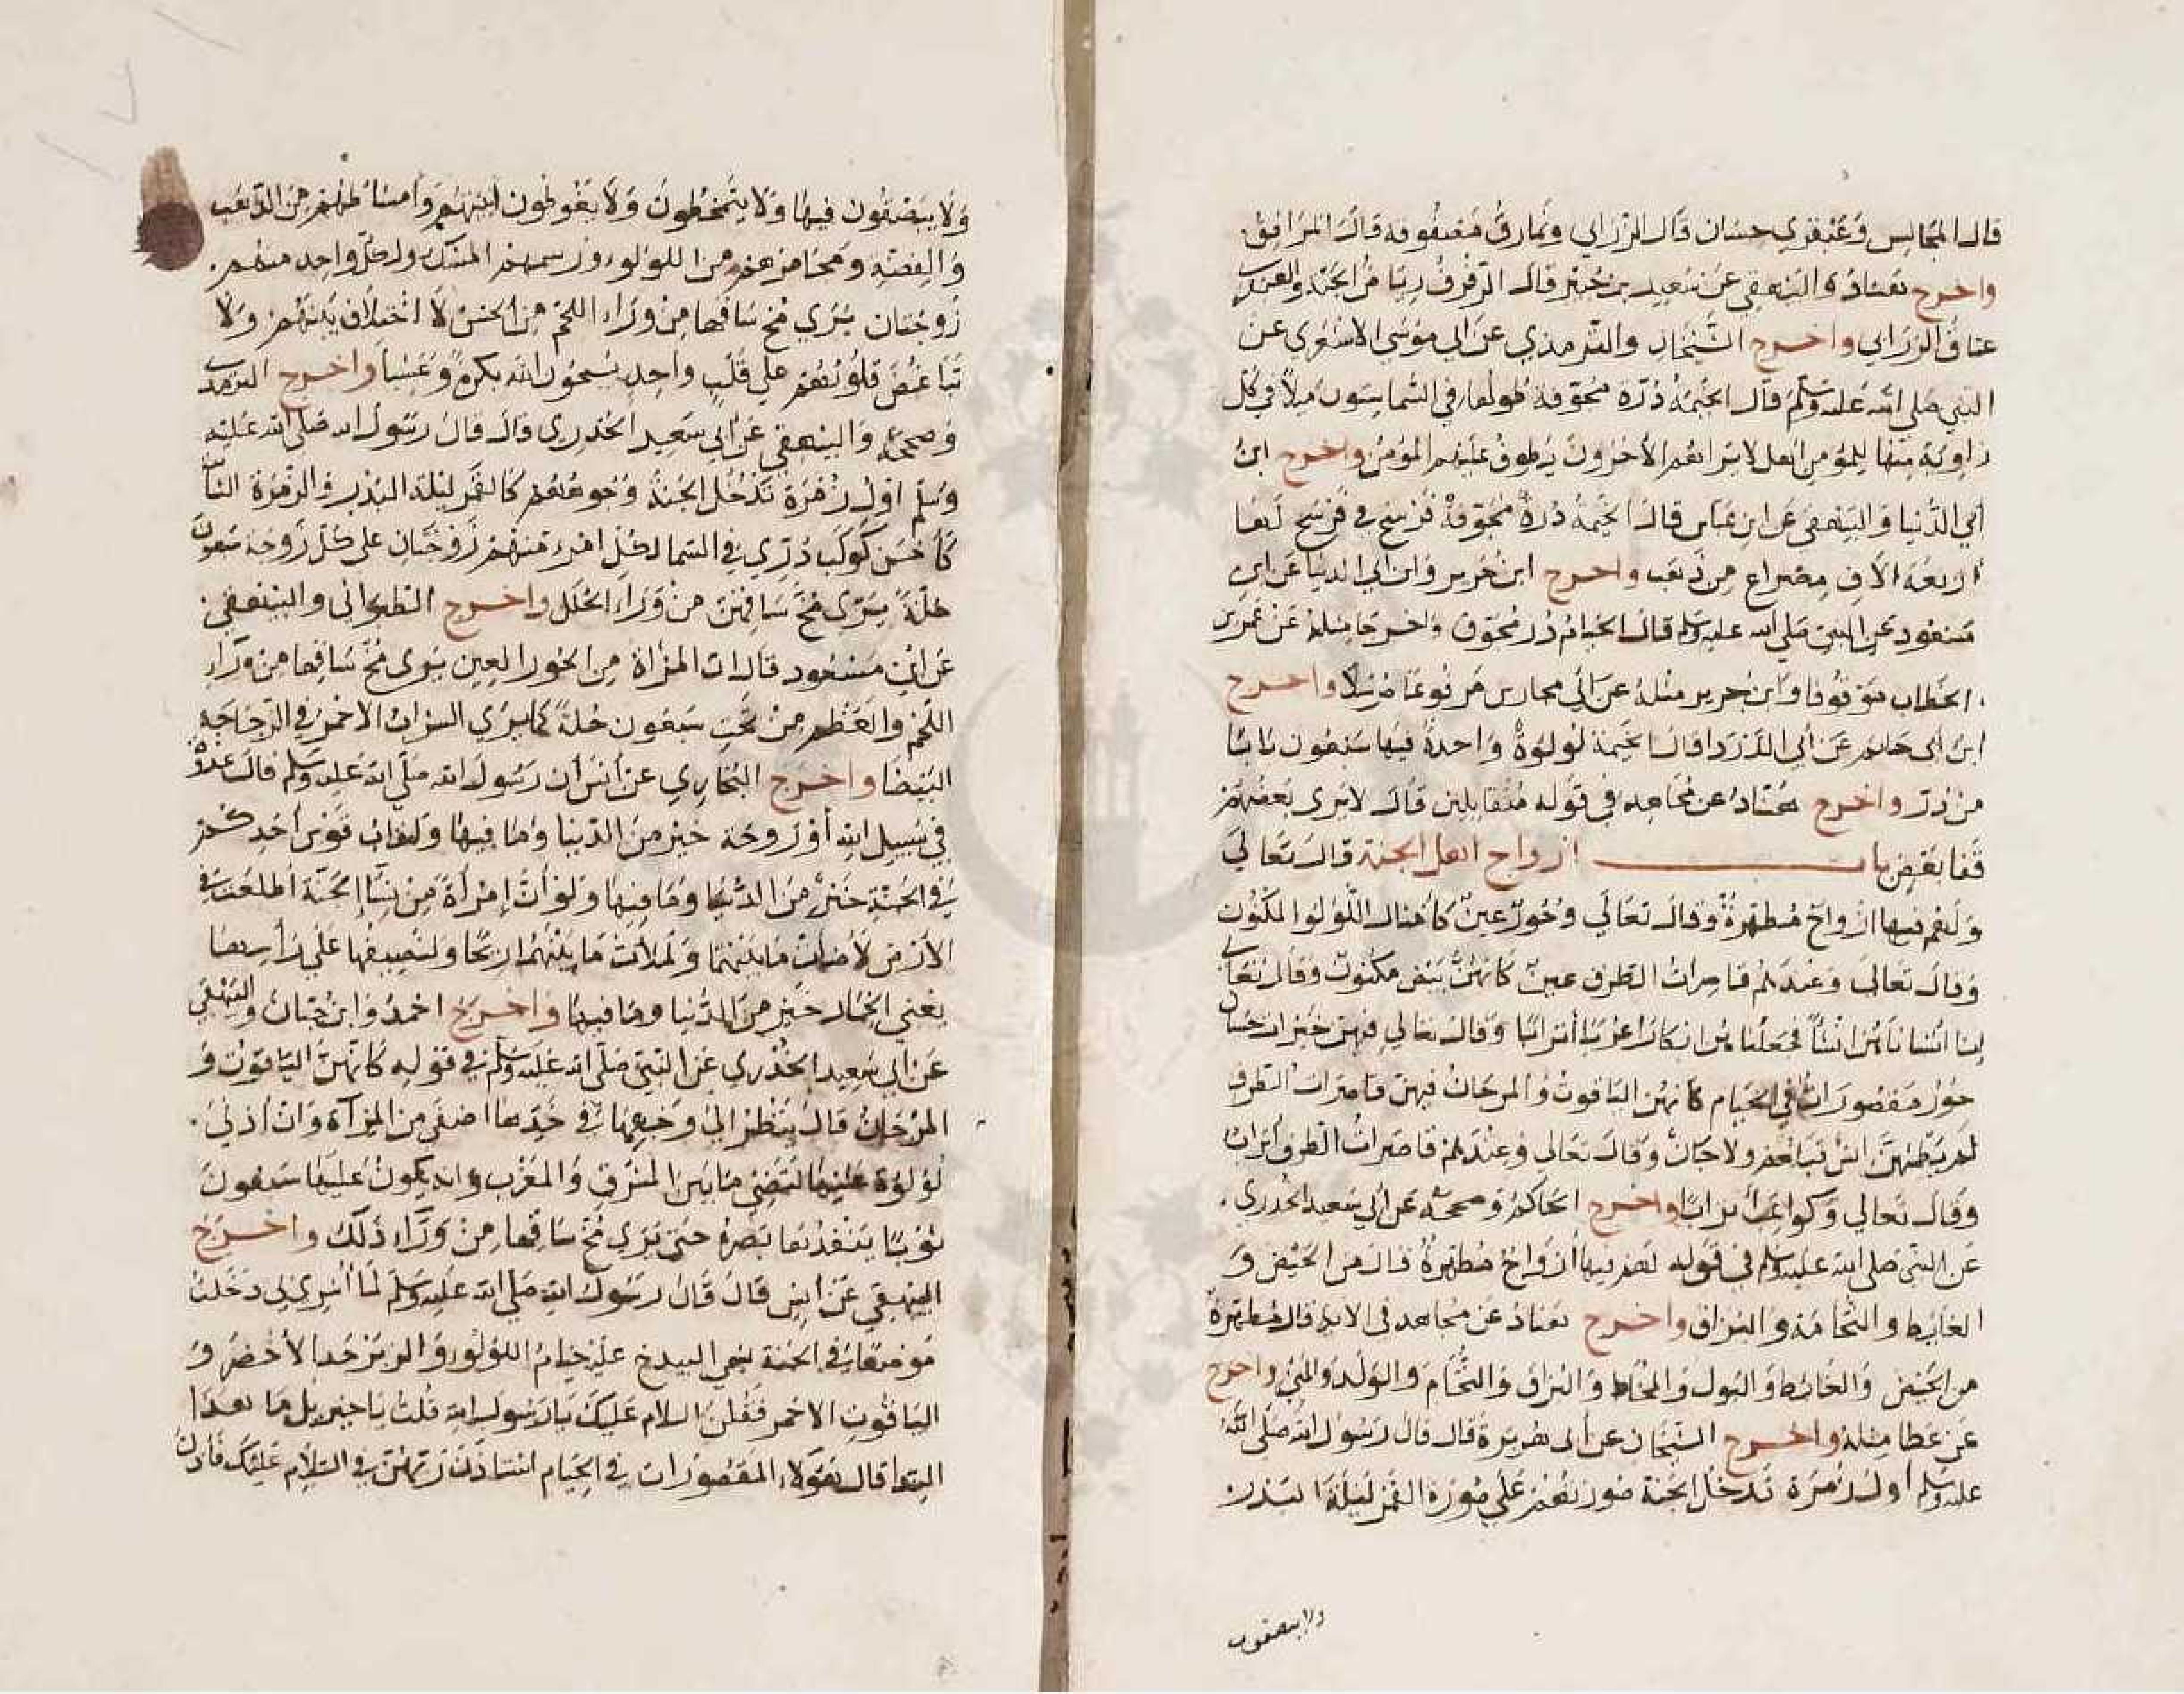 قال المجالس وعبقري حسان قال الزرابي ونمارق مصفوفة قال المرافق
واخرج هناد والبيهقي عن سعيد بن جبير قال الرفرف رياض الجنة والعبقري
عتاق الزرابي واخرج الشيخان والترمذي عن ابي موسى الاشعري عن
النبي صلى الله عليه وسلم قال الخيمة درة مجوفة طولها في السما ستون ميلا في كل
زاوية منها للمؤمن اهل لا يراهم الاخرون يطوف عليهم المؤمن واخرج ابن
ابي الدنيا والبيهقي عن ابن عباس قال الخيمة درة مجوفة فرسخ في فرسخ لها
اربعة الاف مصراع من ذهب واخرج ابن جرير وابن ابي الدنيا عن ابن
مسعود عن النبي صلى الله عليه وسلم قال الخيام در مجوف واخرجا مثله عن عمر بن
الخطاب موقوفا وابن جرير مثله عن ابي مجلز مرفوعا مرسلا واخرج
ابن ابي حاتم عن ابي الدردا قال الخيمة لولوة واحدة فيها سبعون بابا
من در واخرج هناد عن مجاهد في قوله متقابلين قال لا يرى بعضهم
قفا بعض باب ازواج اهل الجنة قال تعالى
ولهم فيها ازواج مطهرة وقال تعالى وحور عين كامثال اللولو المكنون
وقال تعالى وعندهم قاصرات الطرف عين كانهن بيض مكنون وقال تعالى
انا انشاناهن انشاء فجعلناهن ابكارا عربا اترابا وقال تعالى فيهن خيرات حسان
حور مقصورات في الخيام كانهن الياقوت والمرجان فيهن قاصرات الطرف
لم يطمثهن انس قبلهم ولا جان وقال تعالى وعندهم قاصرات الطرف اتراب
وقال تعالى وكواعب اترابا واخرج الحاكم وصححه عن ابي سعيد الخدري
عن النبي صلى الله عليه وسلم في قوله لهم فيها ازواج مطهرة قال من الحيض و
الغايط والنخامة والبزاق واخرج هناد عن مجاهد في الاية قال مطهرة
من الحيض والغايط والبول والمخاط والبزاق والنخام والولد والمني واخرج
عن عطا مثله واخرج الشيخان عن ابي هريرة قال قال رسول الله صلى الله
عليه وسلم اول زمرة تدخل الجنة صورتهم على صورة القمر ليلة البدر
ولا يبصقون
ولا يبصقون فيها ولا يتمخطون ولا يتغوطون انيتهم وامشاطهم من الذهب
والفضة ومجامرهم من اللولو ورشحهم المسك ولكل واحد منهم
زوجتان يرى مخ ساقهما من وراء اللحم من الحسن لا اختلاف بينهم ولا
تباغض قلوبهم على قلب واحد يسبحون الله بكرة وعشيا واخرج الترمذي
وصححه والبيهقي عن ابي سعيد الخدري قال قال رسول الله صلى الله عليه
وسلم اول زمرة تدخل الجنة وجوههم كالقمر ليلة البدر والزمرة الثانية
كاحسن كوكب دري في السما لكل امرء منهم زوجتان على كل زوجة سبعون
حلة يرى مخ ساقهن من وراء الحلل واخرج الطبراني والبيهقي
عن ابن مسعود قال ان المراة من الحور العين يرى مخ ساقها من وراء
اللحم والعظم من تحت سبعون حلة كما يرى الشراب الاحمر في الزجاجة
البيضا واخرج البخاري عن انس ان رسول الله صلى الله عليه وسلم قال غدوة
في سبيل الله او روحة خير من الدنيا وما فيها ولقاب قوس احدكم
في الجنة خير من الدنيا وما فيها ولو ان امراة من نساء الجنة اطلعت في
الارض لاضات ما بينهما ولملات ما بينهما ريحا ولنصيفها على راسها
يعني الخمار خير من الدنيا وما فيها واخرج احمد وابن حبان والبيهقي
عن ابي سعيد الخدري عن النبي صلى الله عليه وسلم في قوله كانهن الياقوت و
المرجان قال ينظر الى وجهها في خدها اصفى من المرآة وان ادنى
لولوة عليها لتضي ما بين المشرق والمغرب وانه يكون عليها سبعون
ثوبا ينفذها بصره حتى يرى مخ ساقها من وراء ذلك واخرج
البيهقي عن انس قال قال رسول الله صلى الله عليه وسلم لما اسري بي دخلت
موضعا في الجنة يسمى البيدخ عليه خيام اللولو والزبرجد الاخضر و
الياقوت الاحمر فقلن السلام عليك يا رسول الله قلت يا جبريل ما هذا
الندا قال هؤلاء المقصورات في الخيام استاذن ربهن في السلام عليك فاذن